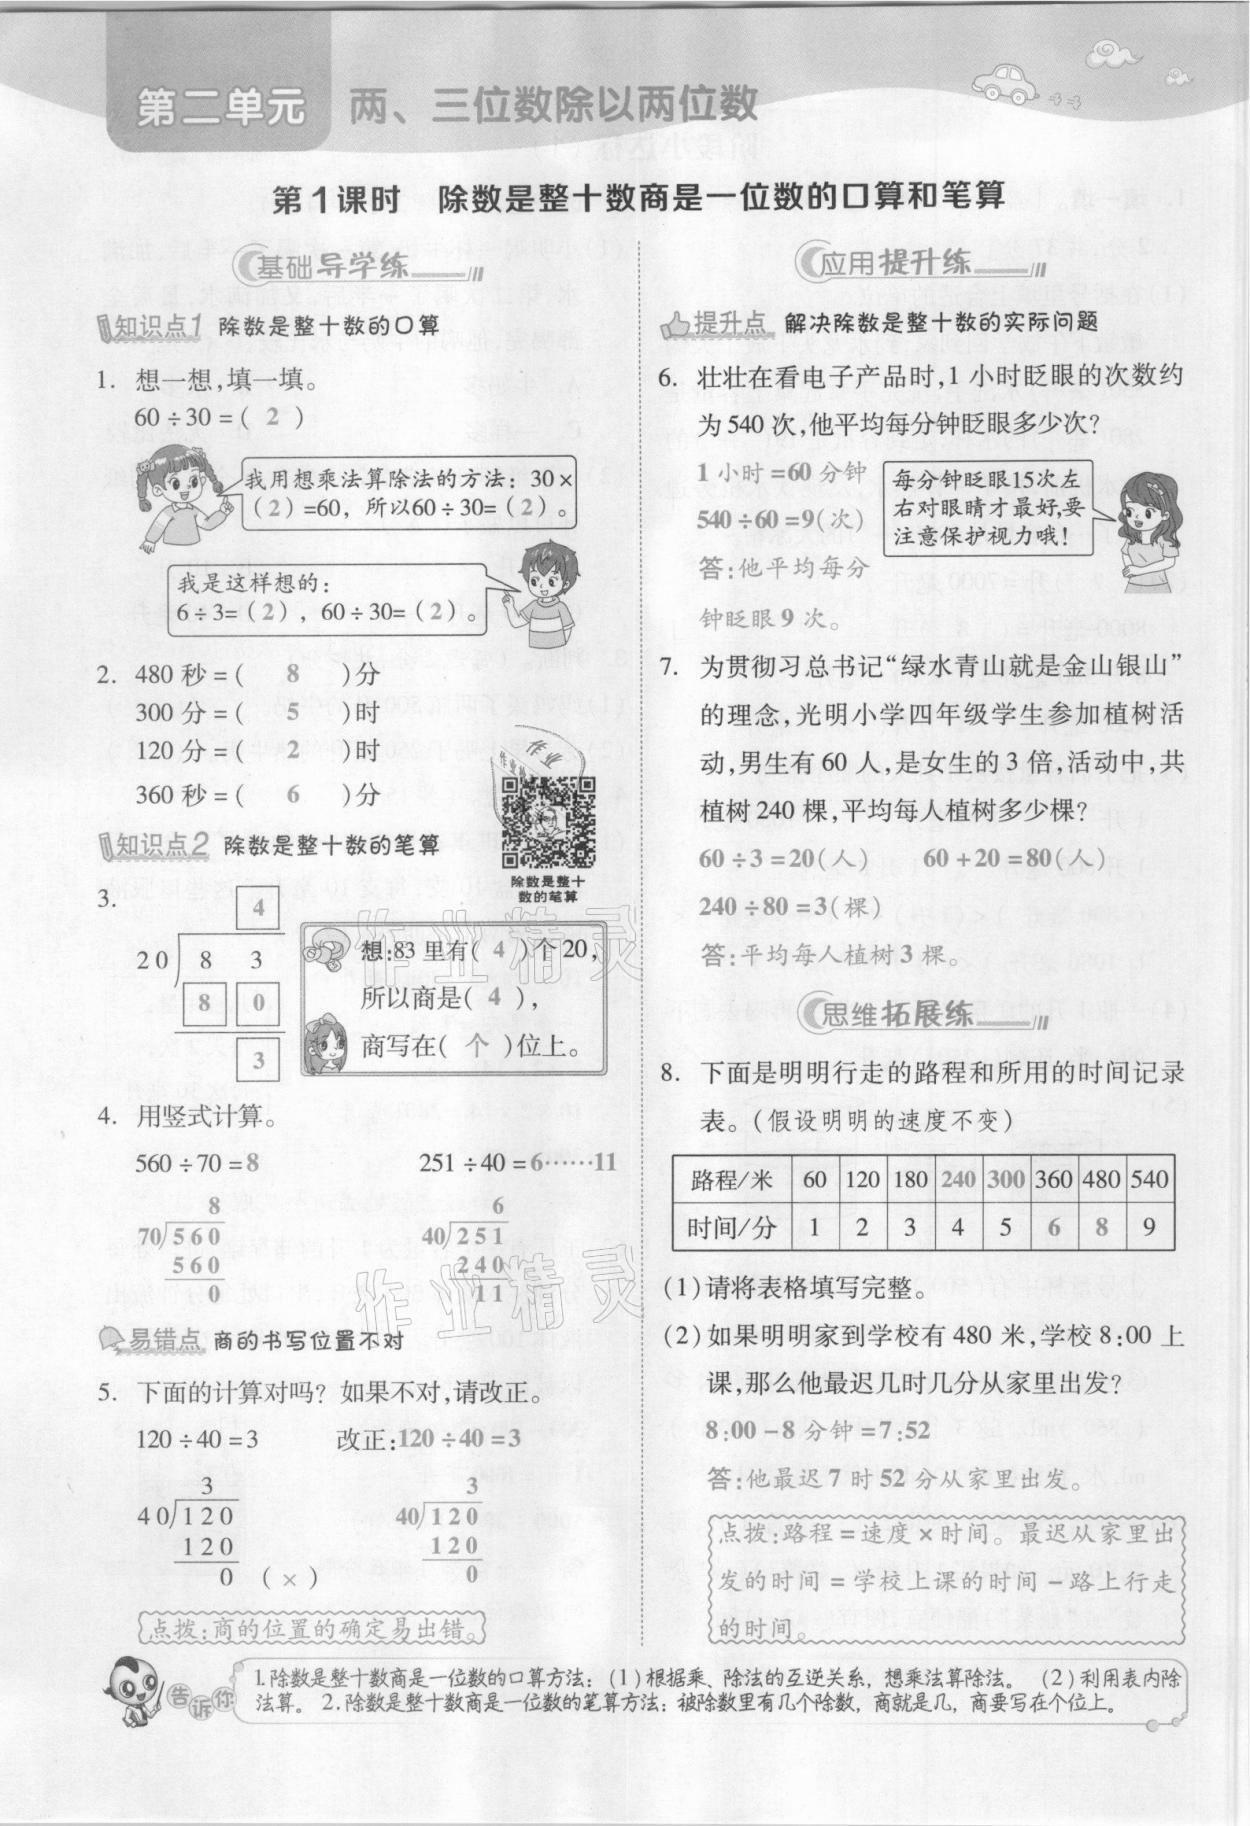 第二单元 两、三位数除以两位数
第1课时 除数是整十数商是一位数的口算和笔算
基础导学练
知识点1 除数是整十数的口算
1. 想一想,填一填。
60÷30=( 2 )
我用想乘法算除法的方法：30×
(2)=60，所以60÷30=(2)。
我是这样想的：
6÷3=(2)，60÷30=(2)。
2. 480秒=( 8 )分
300分=( 5 )时
120分=( 2 )时
360秒=( 6 )分
作业
除数是整十
数的笔算
知识点2 除数是整十数的笔算
3.
4
20 8 3
8 0
3
想:83里有( 4 )个20,
所以商是( 4 ),
商写在( 个 )位上。
4. 用竖式计算。
560÷70=8 251÷40=6……11
8 6
70 560 40 251
560 240
0 11
易错点 商的书写位置不对
5. 下面的计算对吗？如果不对,请改正。
120÷40=3 改正:120÷40=3
3 3
40 120 40 120
120 120
0 (×) 0
点拨:商的位置的确定易出错。
应用提升练
提升点 解决除数是整十数的实际问题
6. 壮壮在看电子产品时,1小时眨眼的次数约
为540次,他平均每分钟眨眼多少次？
1小时=60分钟
540÷60=9(次)
答:他平均每分
钟眨眼9次。
每分钟眨眼15次左
右对眼睛才最好,要
注意保护视力哦！
7. 为贯彻习总书记“绿水青山就是金山银山”
的理念,光明小学四年级学生参加植树活
动,男生有60人,是女生的3倍,活动中,共
植树240棵,平均每人植树多少棵？
60÷3=20(人) 60+20=80(人)
240÷80=3(棵)
答:平均每人植树3棵。
思维拓展练
8. 下面是明明行走的路程和所用的时间记录
表。(假设明明的速度不变)
路程/米 60 120 180 240 300 360 480 540
时间/分 1 2 3 4 5 6 8 9
(1)请将表格填写完整。
(2)如果明明家到学校有480米,学校8:00上
课,那么他最迟几时几分从家里出发？
8:00-8分钟=7:52
答:他最迟7时52分从家里出发。
点拨:路程=速度×时间。最迟从家里出
发的时间=学校上课的时间-路上行走
的时间。
告诉你
1.除数是整十数商是一位数的口算方法：(1)根据乘、除法的互逆关系，想乘法算除法。 (2)利用表内除
法算。 2.除数是整十数商是一位数的笔算方法：被除数里有几个除数，商就是几，商要写在个位上。
作业精灵
作业精灵